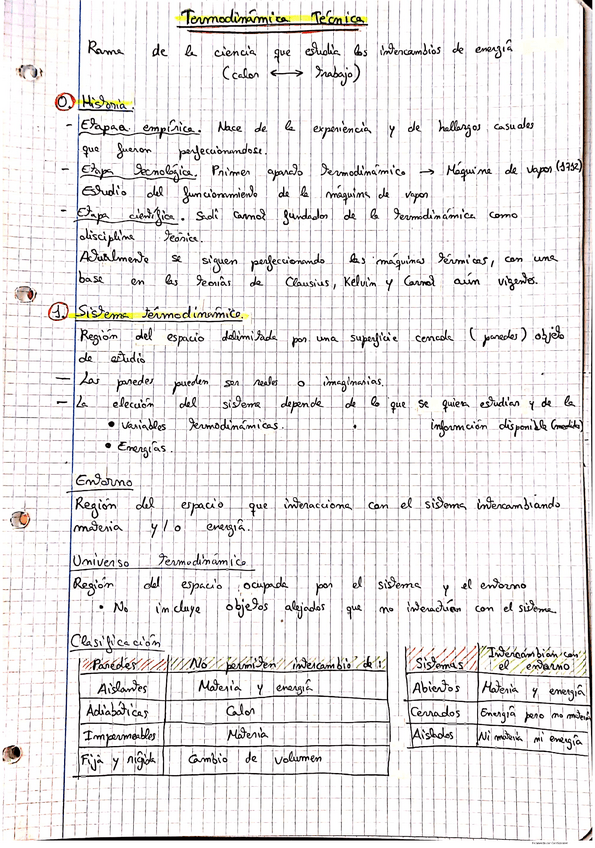 Termodinámica Técnica
Rama de la ciencia que estudia los intercambios de energía
(calor ⟷ trabajo)
0. Historia.
- Etapa empírica. Nace de la experiencia y de hallazgos casuales
que fueron perfeccionandose.
- Etapa tecnológica. Primer aparato termodinámico → Máquina de vapor (1712)
Estudio del funcionamiento de la máquina de vapor
- Etapa científica. Sadi Carnot fundador de la termodinámica como
disciplina teórica.
Actualmente se siguen perfeccionando las máquinas térmicas, con una
base en las teorías de Clausius, Kelvin y Carnot aún vigentes.
1. Sistema térmodinámico.
Región del espacio delimitada por una superficie cerrada (paredes) objeto
de estudio
— Las paredes pueden ser reales o imaginarias.
— La elección del sistema depende de lo que se quiera estudiar y de la
• Variables termodinámicas. • información disponible (medidas)
• Energías.
Entorno
Región del espacio que interacciona con el sistema intercambiando
materia y/o energía.
Universo termodinámico
Región del espacio ocupada por el sistema y el entorno
• No incluye objetos alejados que no interactúan con el sistema
Clasificación
Paredes No permiten intercambio de:
Aislantes Materia y energía
Adiabáticas Calor
Impermeables Materia
Fija y rígida Cambio de volumen
Sistemas Intercambian con el entorno
Abiertos Materia y energía
Cerrados Energía pero no materia
Aislados Ni materia ni energía